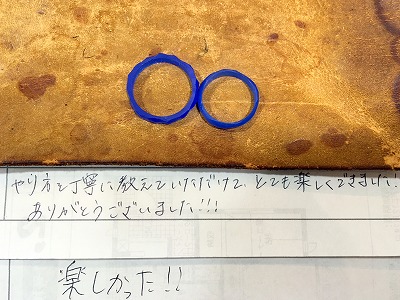 やり方を丁寧に教えていただけて、とても楽しくできました!
ありがとうございました!!!
楽しかった!!